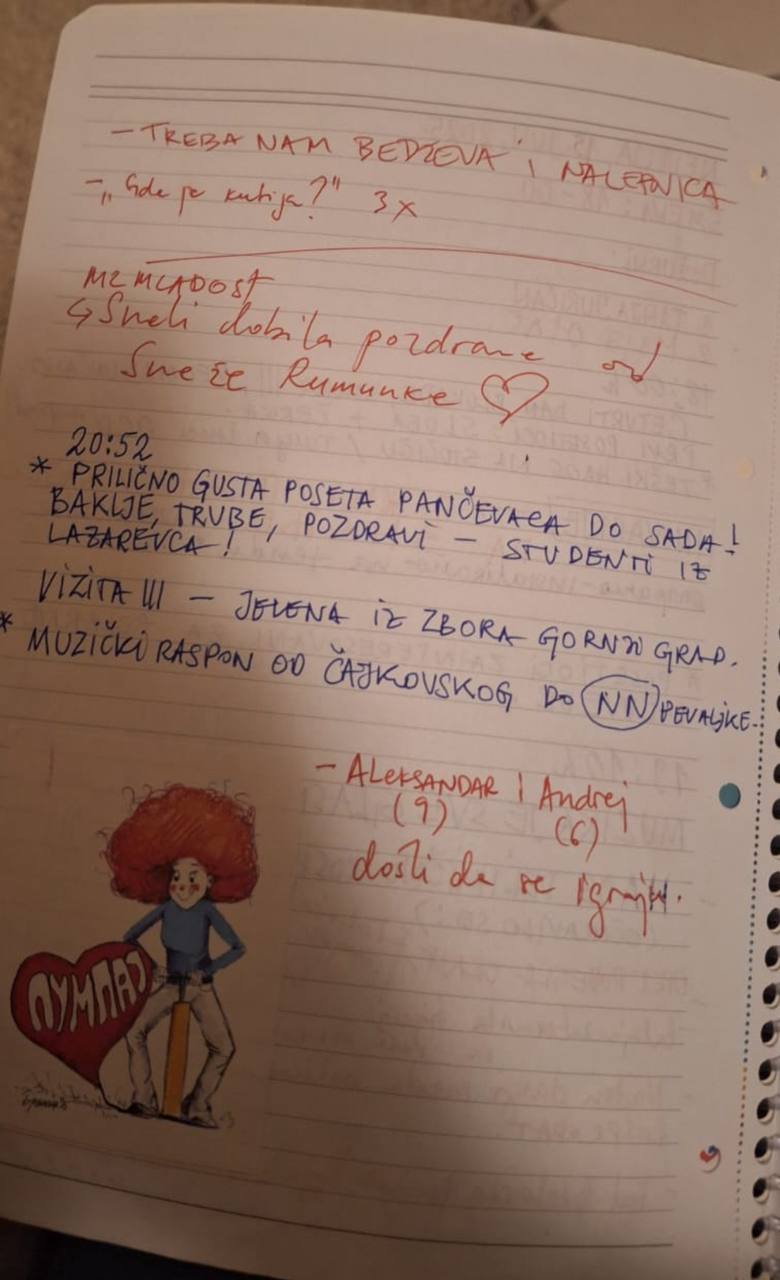 - TREBA NAM BEDŽEVA I NALEPNICA
- „Gde je kutija?" 3x
MZ MLADOST
↳ Sneli dobila pozdrave od
Sneže Rumunke ♡
20:52
* PRILIČNO GUSTA POSETA PANČEVACA DO SADA!
BAKLJE, TRUBE, POZDRAVI - STUDENTI IZ
LAZAREVCA!
VIZITA III - JELENA IZ ZBORA GORNJI GRAD.
* MUZIČKI RASPON OD ČAJKOVSKOG DO NN PEVALJKE.
- ALEKSANDAR I Andrej
(9) (6)
došli da se igraju.
ПУМПАЈ